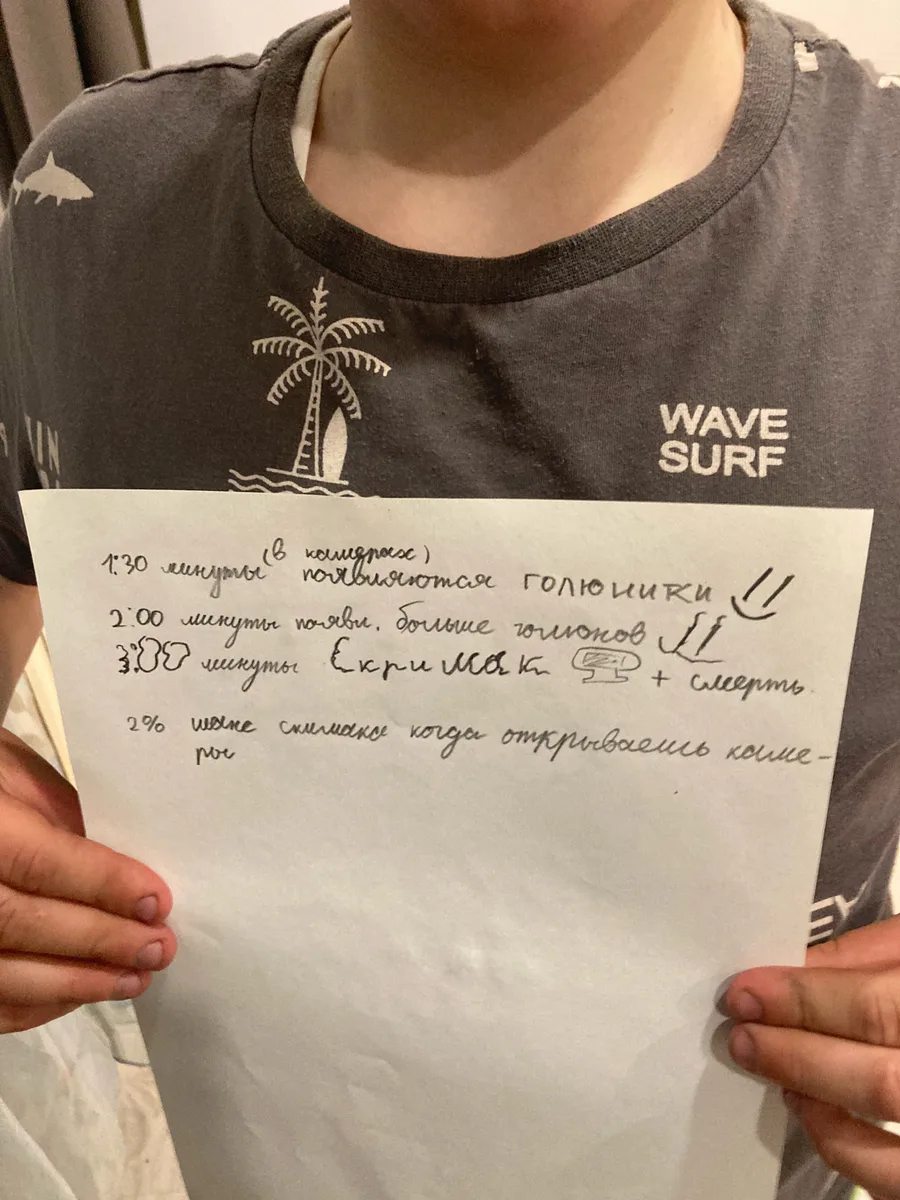 IN
WAVE
SURF
EY
(в камерах)
1:30 минуты появляются голюники
2:00 минуты появл. больше голюнов
3:00 минуты Скримак + смерть.
2% шанс скимака когда открываешь каме-
ры